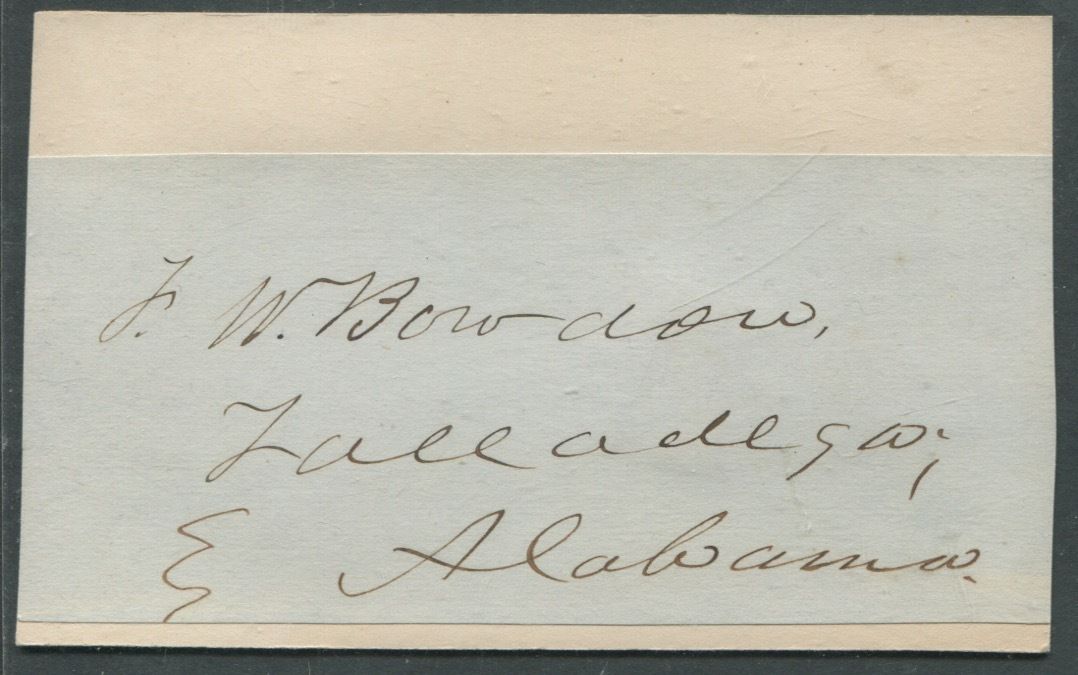 F. W. Bowdon,
Talladega,
Alabama.